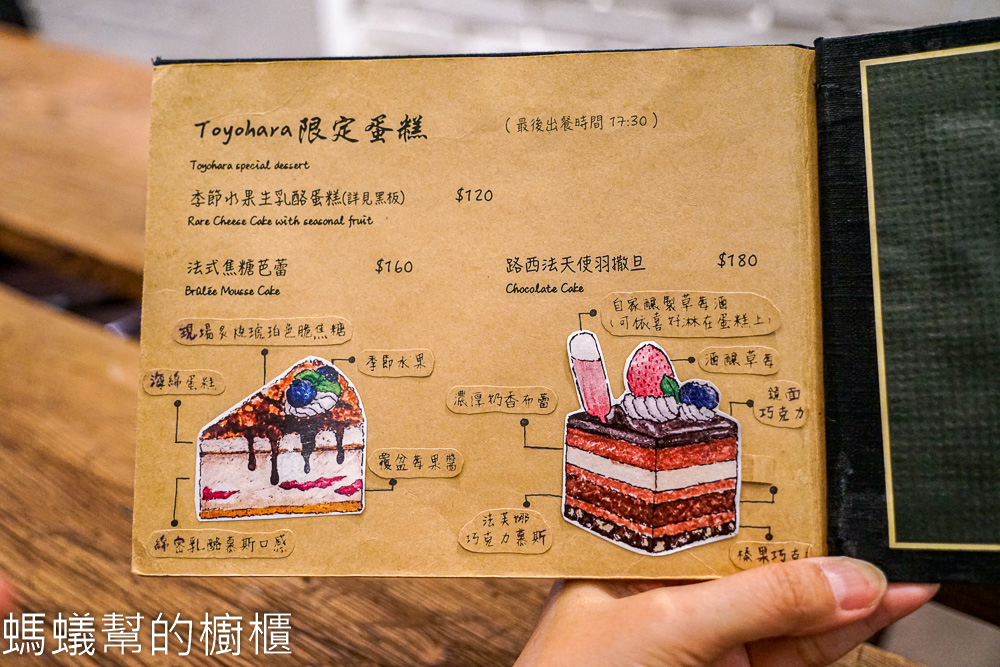 Toyohara限定蛋糕
(最後出餐時間 17:30)
Toyohara special dessert
季節水果生乳酪蛋糕(詳見黑板)
$120
Rare Cheese Cake with seasonal fruit
法式焦糖芭蕾
$160
Brûlée Mousse Cake
路西法天使羽撒旦
$180
Chocolate Cake
現場炙燒琥珀色脆焦糖
季節水果
海綿蛋糕
覆盆莓果醬
綿密乳酪慕斯口感
自家釀製草莓酒
(可依喜好淋在蛋糕上)
酒釀草莓
濃厚奶香布蕾
鏡面
巧克力
法芙娜
巧克力慕斯
榛果巧克
螞蟻幫的櫥櫃